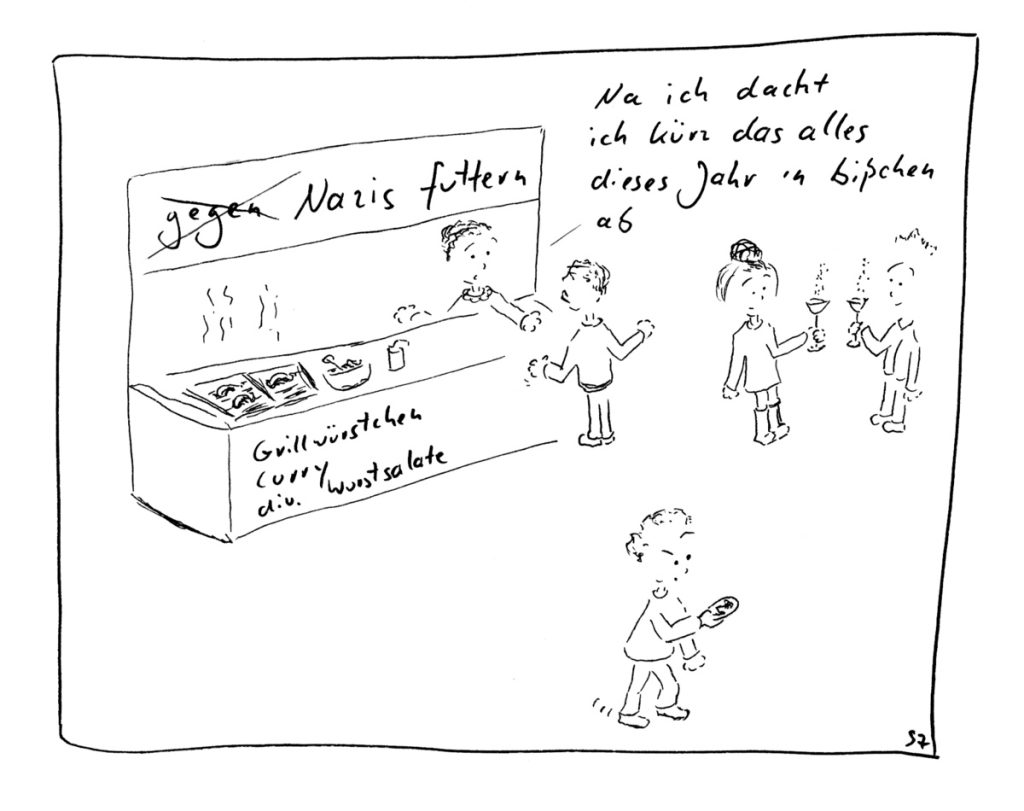 Na ich dacht
ich kürz das alles
dieses Jahr 'n bißchen
ab
gegen Nazis futtern
Grillwürstchen
Curry
div. Wurstsalate